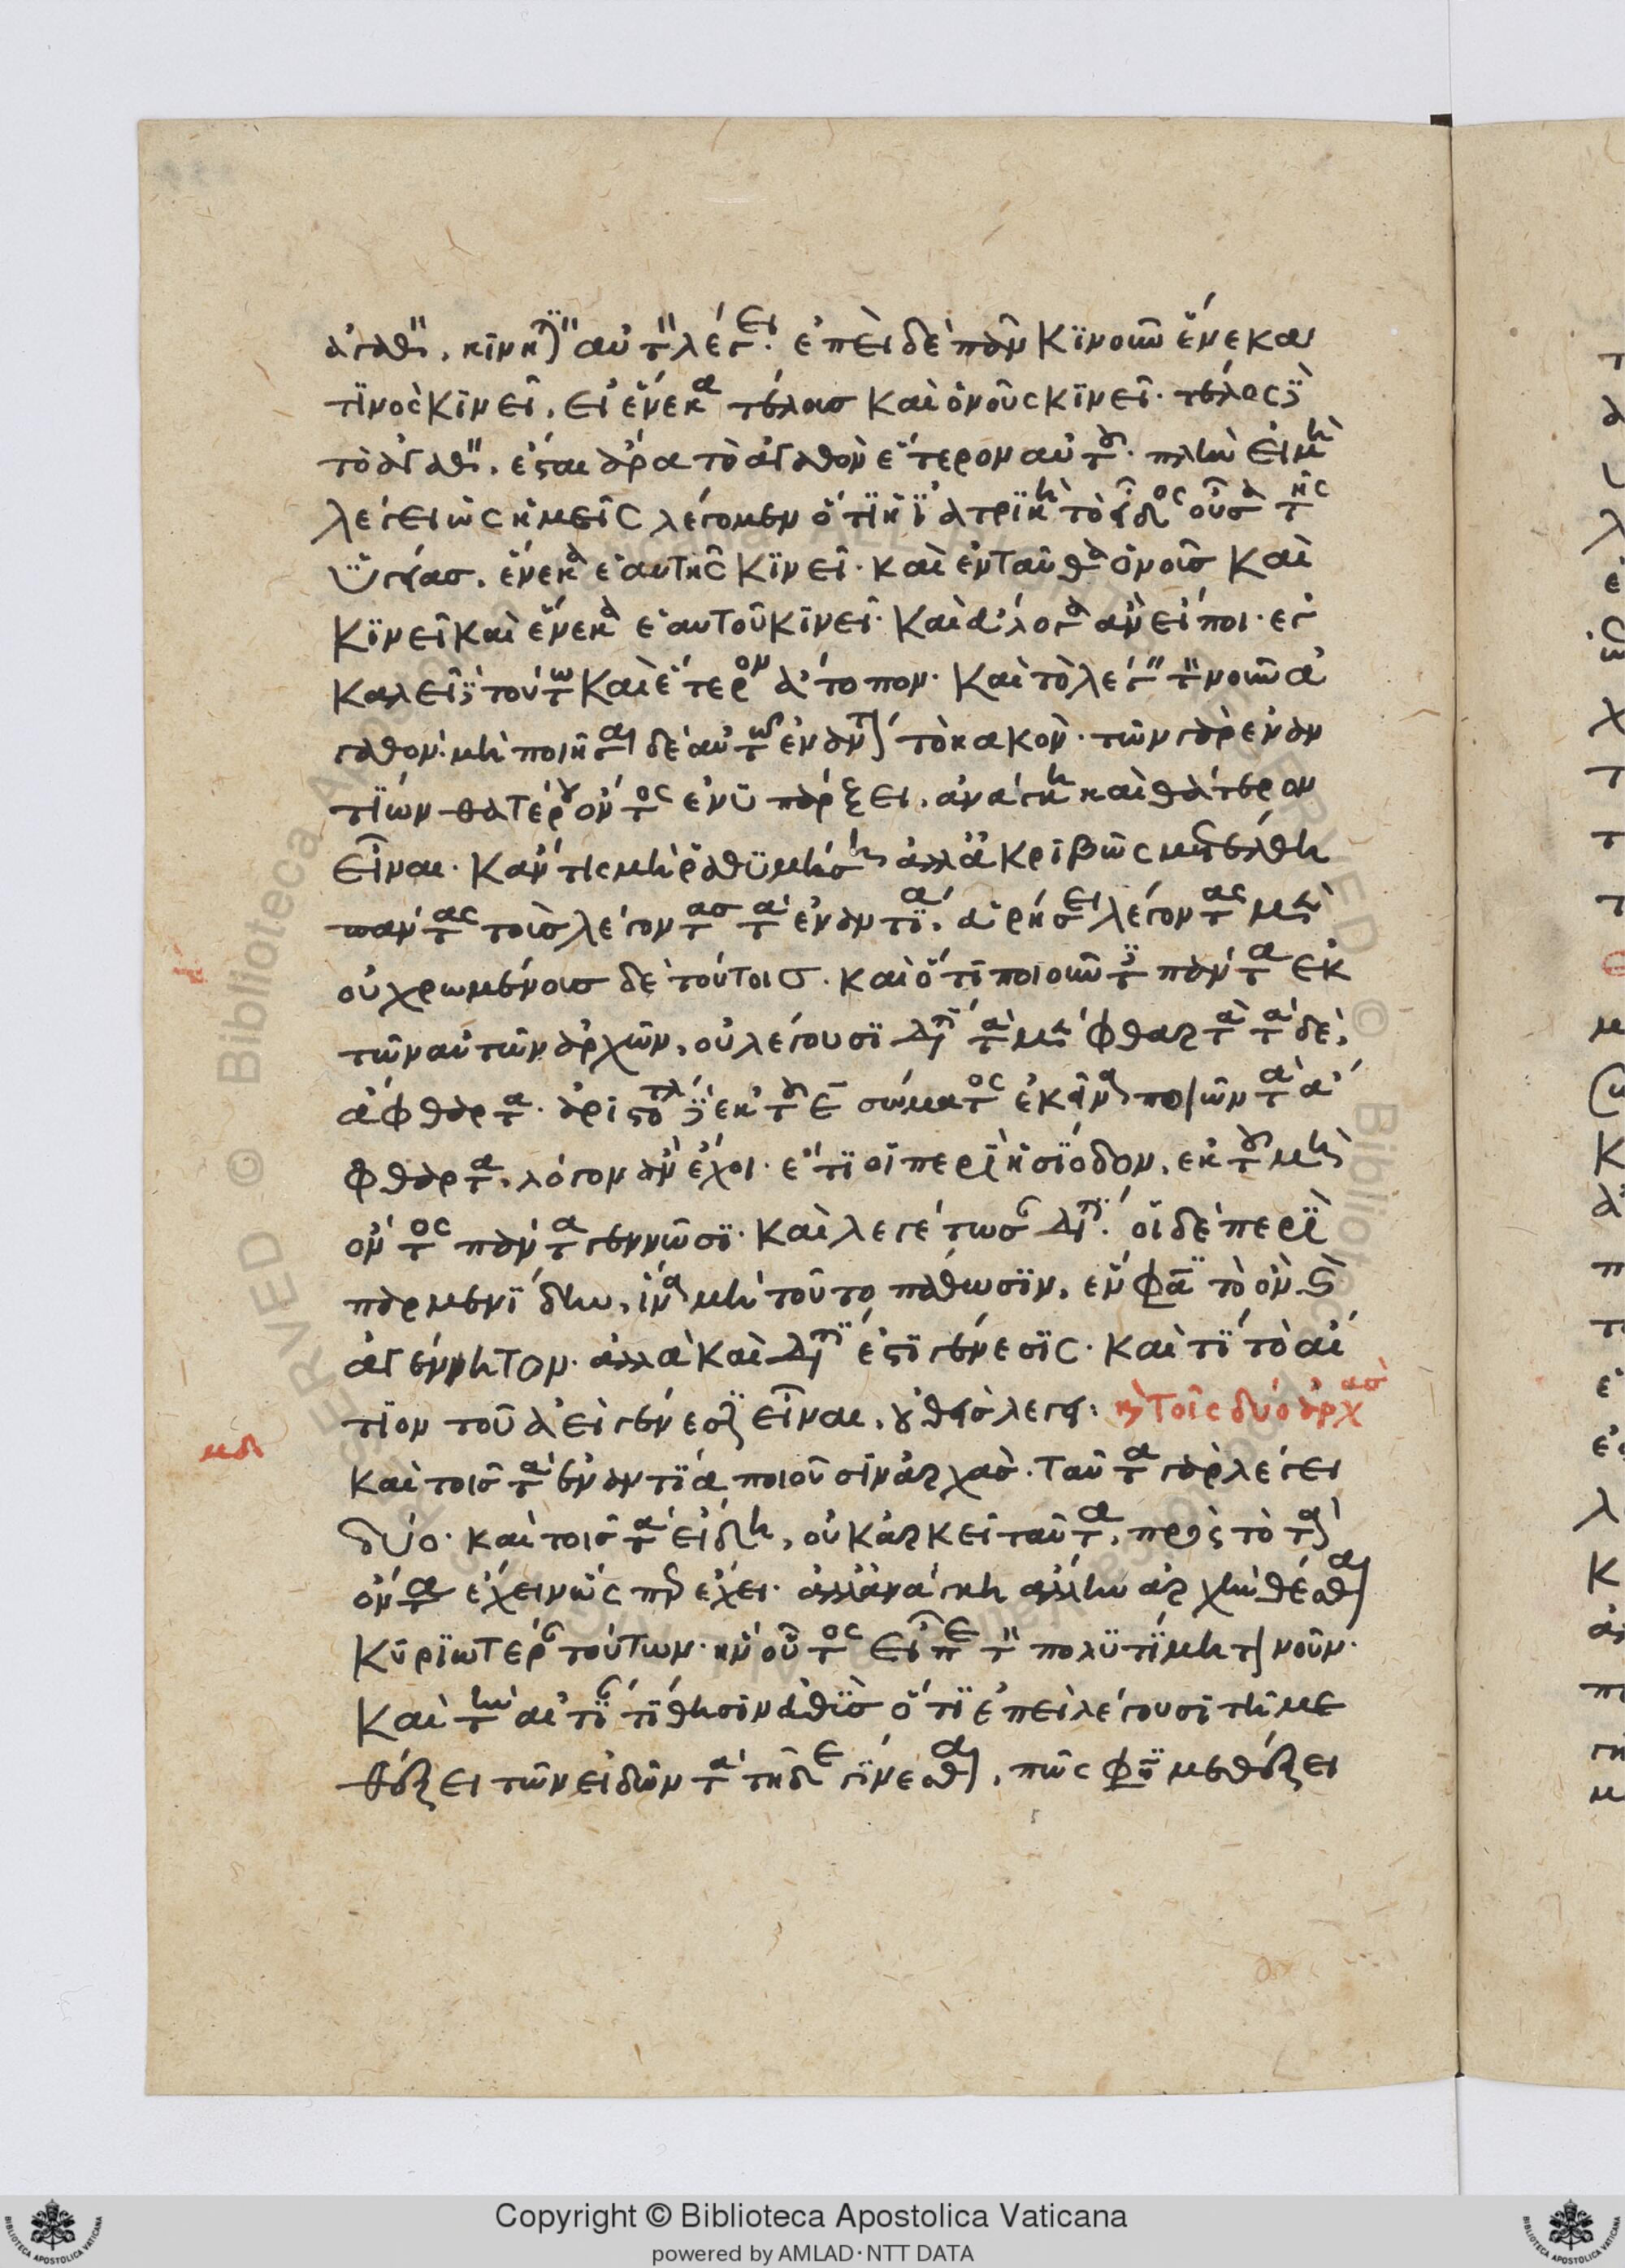 ἀγαθὸν. κινητικὸν αὐτὸν λέγει. ἐπεὶ δὲ πᾶν κϊνοῦν ἕνεκα
τϊνὸς κϊνεῖ. εἰ ἕνεκα τέλους καὶ ὁ νοῦς κϊνεῖ. τέλος δὲ
τὸ ἀγαθὸν. ἔσται ἄρα τὸ ἀγαθὸν ἕτερον αὐτοῦ. πλὴν εἰ μὴ
λέγει ὡς ἡμεῖς λέγομεν ὅτϊ ἡ ἰατρϊκὴ τὸ εἶδος οὖσα τῆς
ὑγιείας. ἕνεκα ἑαυτῆς κϊνεῖ. καὶ ἐνταῦθα ὁ νοῦς καὶ
κϊνεῖ καὶ ἕνεκα ἑαυτοῦ κϊνεῖ. καὶ ἄλογα ἂν εἴποι. ἐγ
καλεῖ δὲ τούτω καὶ ἕτερον ἄτοπον. καὶ τὸ λέγειν τὸν νοῦν ἀ
γαθόν. μὴ ποιῆσαι δὲ αὐτῶ ἐναντίον τὸ κακόν. τῶν γὰρ ἐναν
τϊων θατέρου ὄντος ἐν ὑπάρξει. ἀνάγκη καὶ θάτερον
εἶναι. κἄν τις μὴ ῥαθϋμήση ἀλλ' ἀκριβῶς μετέλθη
πάντας τοὺς λέγοντας τὰ ἐναντϊα. εὑρήσει λέγοντας μὲν
οὐ χρωμένους δὲ τούτοις. καὶ ὅτι ποιοῦντες πάντα ἐκ
τῶν αὐτῶν ἀρχῶν. οὐ λέγουσϊ διατί τὰ μὲν φθαρτὰ τὰ δὲ.
ἄφθαρτα. ἀριστοτέλης δὲ ἐκ τοῦ ε σώματος ἐκεῖνα ποιῶν τὰ ἄ
φθαρτα. λόγον ἂν ἔχοι. ἔτϊ οἱ περὶ ἡσίοδον. ἐκ τοῦ μὴ
ὄντος πάντα γεννῶσϊ. καὶ λεγέτωσαν διατί. οἱ δὲ περὶ
παρμενίδην. ἵνα μὴ τοῦτο πάθωσϊν. ἕν φασϊ τὸ ὂν καὶ
ἀγέννητον. ἀλλὰ καὶ διατί ἔστϊ γένεσϊς. καὶ τί τὸ αἴ
τϊον τοῦ ἀεὶ γένεσιν εἶναι. οὐθεὶς λέγει: καὶ Τοῖς δύο ἀρχὰς
μδ
καὶ τοῖς τὰ ἐναντϊα ποιοῦσιν ἀρχάς. ταῦτα γὰρ λέγει
δύο. καὶ τοῖς τὰ εἴδη. οὐκ ἀρκεῖ ταῦτα. πρὸς τὸ τὰ
ὄντα ἔχειν ὥς περ ἔχει. ἀλλ' ἀνάγκη ἄλλην ἀρχὴν θέσθαι
κϋρϊωτέραν τούτων. ἣν οὗτος εἶπε τὸν πολϋτίμητον νοῦν.
καὶ τὴν αἰτίαν τίθησιν αὖθις ὅτϊ ἐπεὶ λέγουσϊ τῆ με
θέξει τῶν εἰδῶν τὰ τῆδε γίνεσθαι. πῶς φασϊ μεθέξει